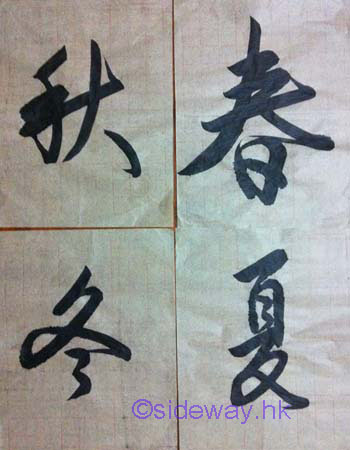 春
夏
秋
冬
©sideway.hk